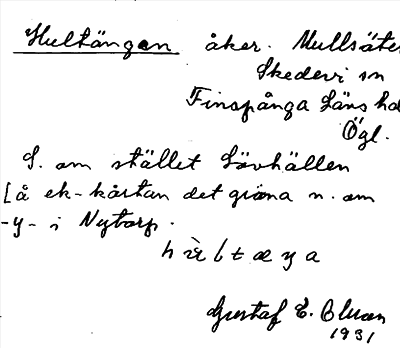 Hultängen åker. Mullsäte
Skedevi sn
Finspånga Läns hd
Ögl.
S. om stället Lövhällen
[å ek-kartan det gröna n. om
-y- i Nytorp.
Gustaf E. Bluon
1931